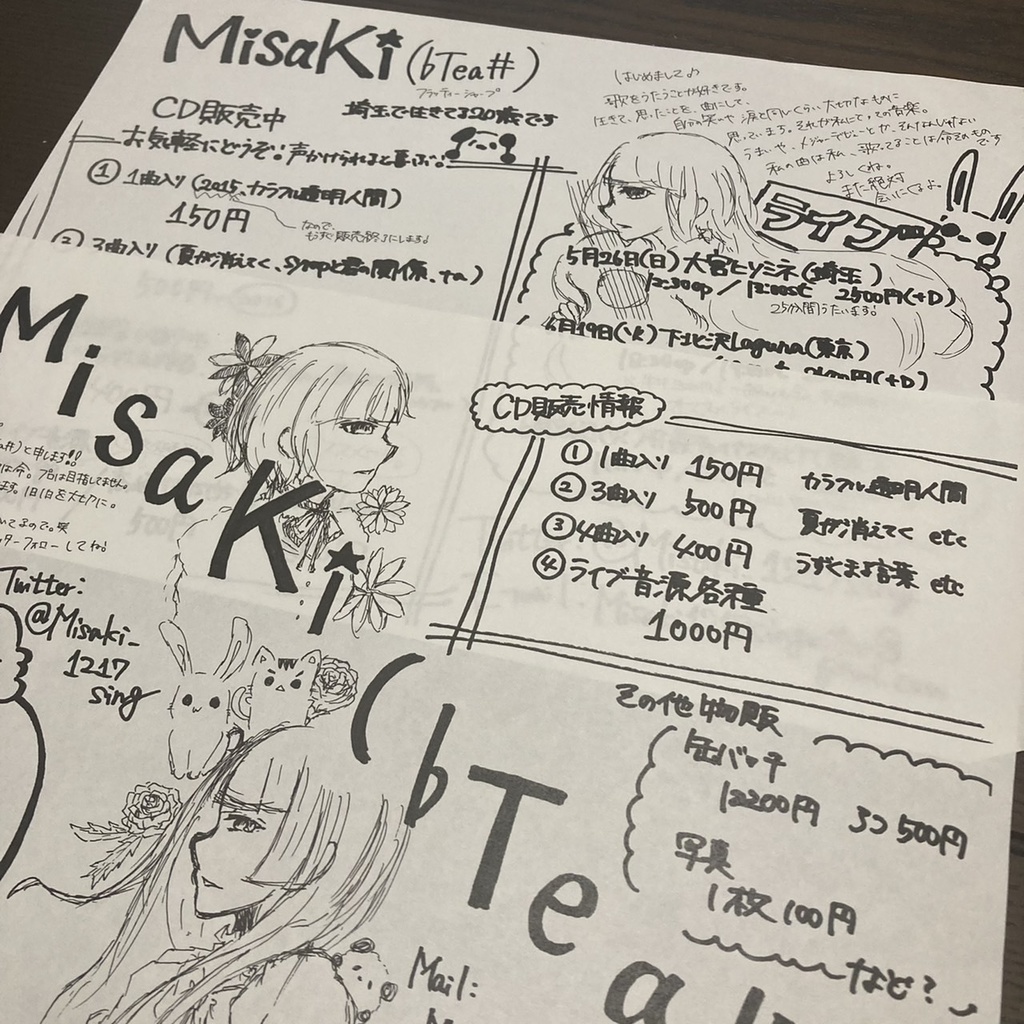 Misaki (bTea#)
フラッティーシャープ
CD販売中
埼玉で生きてる20歳です
お気軽にどうぞ!声かけられると喜ぶ!
① 1曲入り (2015、カラフル透明人間)
150円
なので、
もうすぐ販売終了にします!
② 3曲入り (夏が消えてく、
はじめまして♪
歌をうたうことが好きです。
生きて、思ったことを、曲にして、
自分の笑いや涙と同じくらい大切なものに
思っています。それが私にとっての音楽。
私の曲は私、歌ってることは命そのものです
よろしくね。
また絶対
会いにくるよ
ライブ
5月26日(日) 大宮ヒソミネ(埼玉)
12:30op / 12:00st 2500円(+D)
25分間うたいます!
6月19日(水) 下北沢Laguna(東京)
円(+D)
Misaki
と申します!!
は今。プロは目指してません。
ます。1日1日を大切に。
いてるので。笑
ターフォローしてね。
Twitter:
@Misaki_
1217
sing
CD販売情報
① 1曲入り 150円 カラフル透明人間
② 3曲入り 500円 夏が消えてく etc
③ 4曲入り 400円 うずくまる言葉 etc
④ ライブ音源各種
1000円
その他物販
缶バッチ
1コ200円 3コ500円
写真
1枚100円
など?
(bTea
Mail: